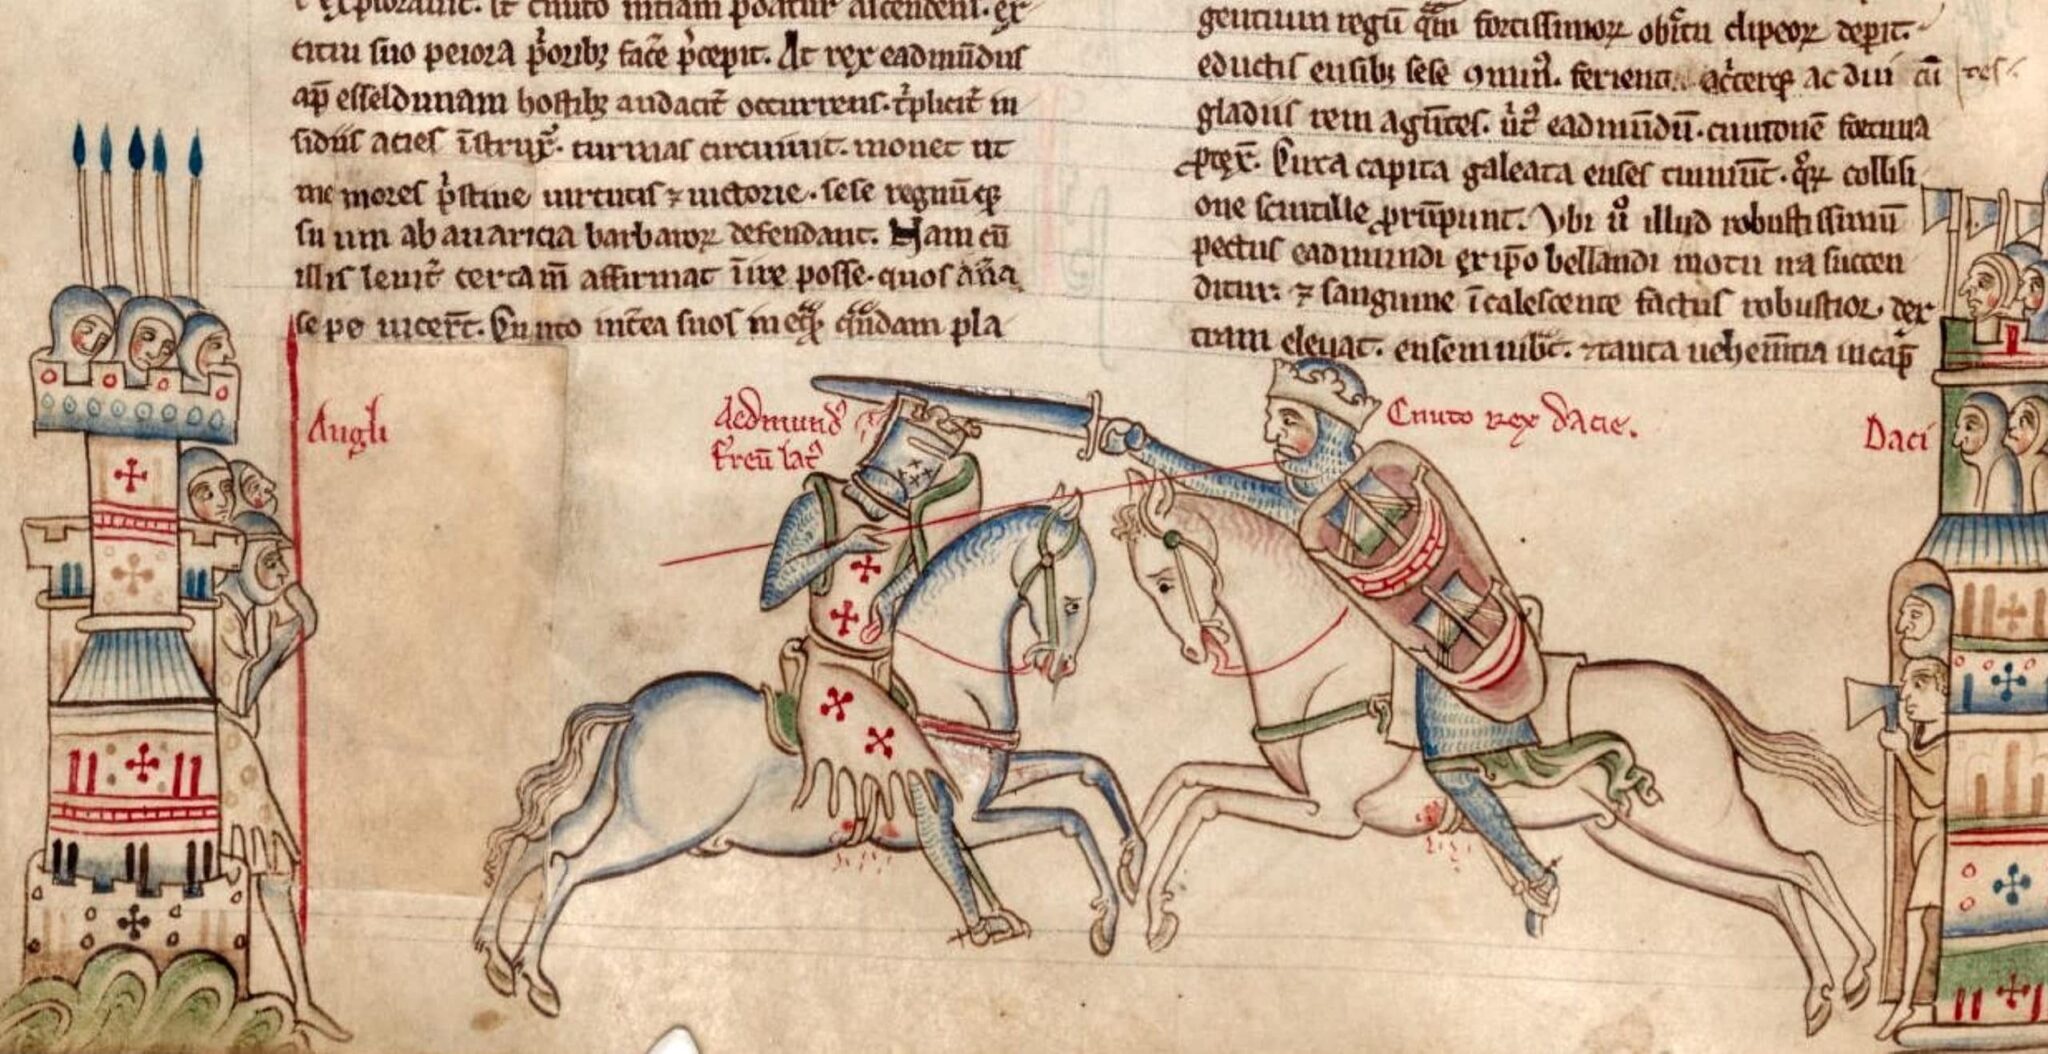 explorauit. Et cnuto ascendens. ex
citui suo peiora p̓orib; fac̄e p̓cepit. At rex eadmūdus
ap̄ esseldunam hostib; audacit̄ occurrens. t̓plicit̄ in
sidiis acies īstrux̄. turmas circuiuit. monet ut
memores p̓stine uirtutis ⁊ uictorie. sese regnūq;
suum ab auaricia barbaroꝝ defendant. Nam cū
illis leuit̄ certam̄ affirmat īire posse. quos an̄a
sepe uicer̄t. Cnuto int̄ea suos pla
gentium regū fortissimoꝝ obītu clipeoꝝ depit.
eductis ensib; sese ꝯmin̄. ferient. ac dui cū tes.
gladiis rem agūtes. eadmūdū. cnutonē fortuna
ꝓtex̄. Circa capita galeata enses tinniūt. collisi
one scintille ꝓrūpunt. Vbi ū illud robustissimū
pectus eadmundi ex ip̄o bellandi motu ua succen
ditur. ⁊ sanguine īcalescente factus robustior. dex
tram eleuat. ensem uib̄t. ⁊ tanta uehem̄tia in cap̄
Angli
Aedmund᾽
ferrū lat᾽
Cnuto rex dacie.
Daci